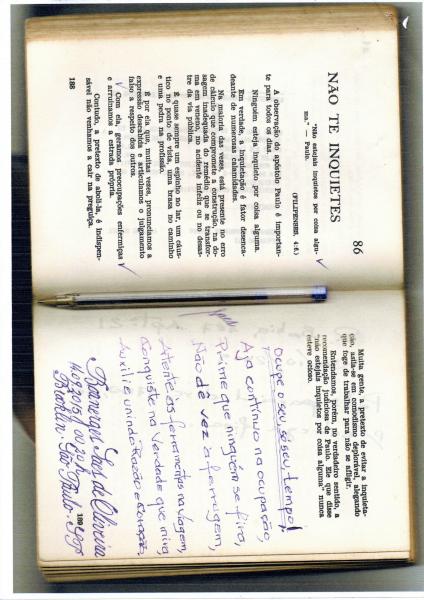 86
NÃO TE INQUIETES
"Não estejais inquietos por coisa algu-
ma" — Paulo.
(FILIPENSES, 4:6.)
A observação do apóstolo Paulo é importan-
te para todos os dias.
Ninguém esteja inquieto por coisa alguma.
Em verdade, a inquietação é fator desenca-
deante de numerosas calamidades.
Na maioria das vezes, está presente no erro
de cálculo que compromete a construção, na do-
sagem inadequada do remédio que se transfor-
ma em veneno, no acidente infeliz ou no desas-
tre da via pública.
É quase sempre um espinho no lar, um cáus-
tico no ponto de vista, uma brasa no caminho
e uma pedra na profissão.
É por ela que, muitas vezes, pronunciamos a
expressão descabida e articulamos o julgamento
falso a respeito dos outros.
Com ela, geramos preocupações enfermiças
e arruinamos a estrada própria.
Contudo, a pretexto de aboli-la, é indispen-
sável não venhamos a cair na preguiça.
188
Muita gente, a pretexto de evitar a inquieta-
ção, asila-se em comodismo deplorável, alegando
que foge de trabalhar para não se afligir.
Entendamos, porém, no verdadeiro sentido, a
recomendação judiciosa de Paulo. Ele que disse
"não estejais inquietos por coisa alguma" nunca
esteve ocioso.
Ocupe o seu só seu tempo!
Aja contínuo na ocupação,
Prime que ninguém se fira,
Não dê vez a ferrugem,
Atente as ferramentas na viagem,
Conquiste na Verdade que mira,
Auxilie unindo Razão e Coração,
de Oliveira
São Paulo
189